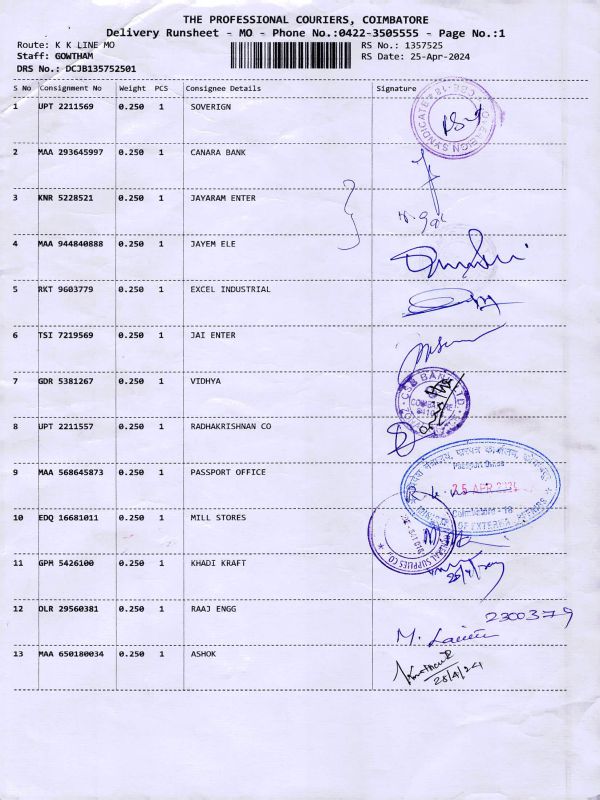 THE PROFESSIONAL COURIERS, COIMBATORE
Delivery Runsheet - MO - Phone No.:0422-3505555 - Page No.:1
Route: K K LINE MO RS No.: 1357525
Staff: GOWTHAM RS Date: 25-Apr-2024
DRS No.: DCJB135752501
S No Consignment No Weight PCS Consignee Details Signature
1 UPT 2211569 0.250 1 SOVERIGN
2 MAA 293645997 0.250 1 CANARA BANK
3 KNR 5228521 0.250 1 JAYARAM ENTER
4 MAA 944840888 0.250 1 JAYEM ELE
5 RKT 9603779 0.250 1 EXCEL INDUSTRIAL
6 TSI 7219569 0.250 1 JAI ENTER
7 GDR 5381267 0.250 1 VIDHYA
CSB BANK LTD.
8 UPT 2211557 0.250 1 RADHAKRISHNAN CO
9 MAA 568645873 0.250 1 PASSPORT OFFICE
Passport Office
25 APR 2024
Coimbatore - 18
OF EXTERNAL AFFAIRS
10 EDQ 16681011 0.250 1 MILL STORES
SUPPLIES CO
11 GPM 5426100 0.250 1 KHADI KRAFT
12 DLR 29560381 0.250 1 RAAJ ENGG
2300379
13 MAA 650180034 0.250 1 ASHOK
25/4/24